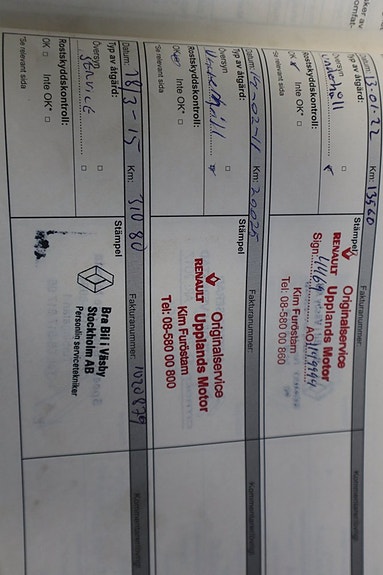 Datum: 13-01-22 Km: 13560
Fakturanummer:
Kommentar/åtgärd:
Typ av åtgärd:
Översyn
Underhåll
Rostskyddskontroll:
OK Inte OK*
*Se relevant sida
Stämpel
Originalservice
RENAULT Upplands Motor
Sign.
Kim Furöstam
Tel: 08-580 00 860
Datum: 14-02-11 Km: 20025
Fakturanummer:
Typ av åtgärd:
Översyn
Underhåll
Rostskyddskontroll:
OK Inte OK*
*Se relevant sida
Stämpel
Originalservice
RENAULT Upplands Motor
Kim Furöstam
Tel: 08-580 00 800
Datum: 18/3-15 Km: 31080
Fakturanummer: 1020879
Typ av åtgärd:
Översyn
SERVICE
Rostskyddskontroll:
OK Inte OK*
*Se relevant sida
Stämpel
Bra Bil i Väsby
Stockholm AB
Personlig servicetekniker